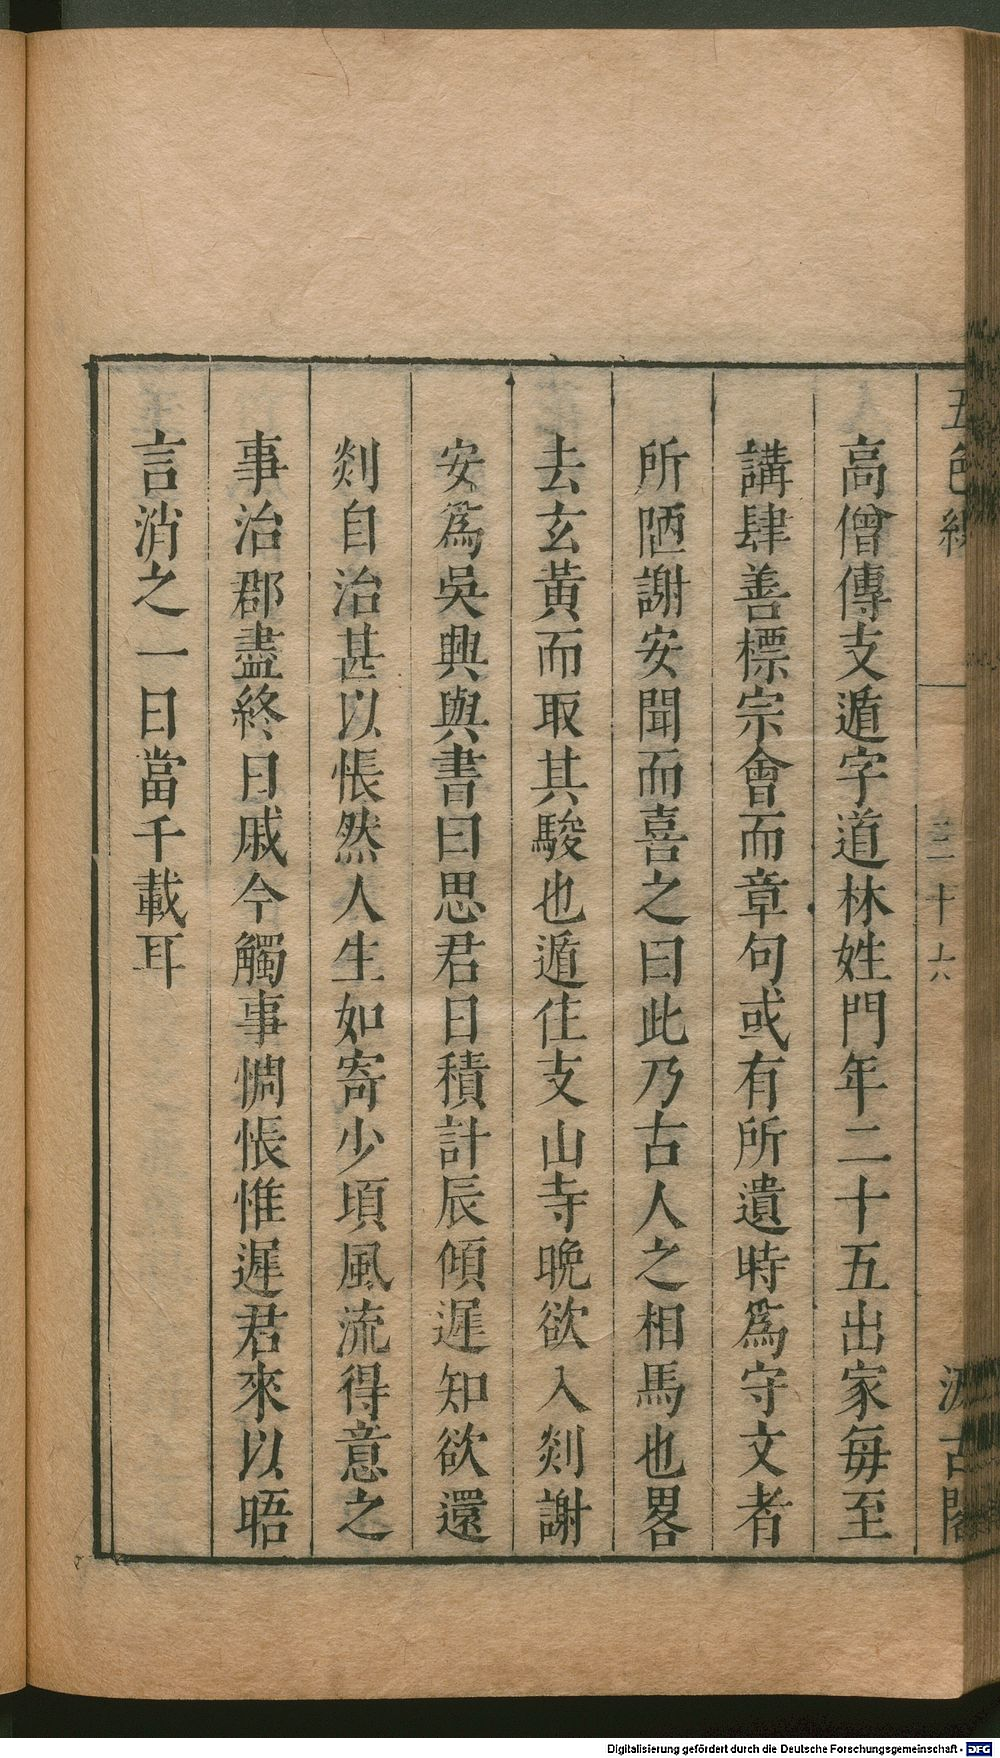 高僧傳支遁字道林姓門年二十五出家每至
講肆善標宗會而章句或有所遺時爲守文者
所陋謝安聞而喜之曰此乃古人之相馬也畧
去玄黃而取其駿也遁住支山寺晚欲入剡謝
安爲吳興與書曰思君日積計辰傾遲知欲還
剡自治甚以悵然人生如寄少項風流得意之
事治郡盡終日戚今觸事惆悵惟遲君來以晤
言消之一日當千載耳
五色線
三十六
汲古閣
Digitalisierung gefördert durch die Deutsche Forschungsgemeinschaft - DFG